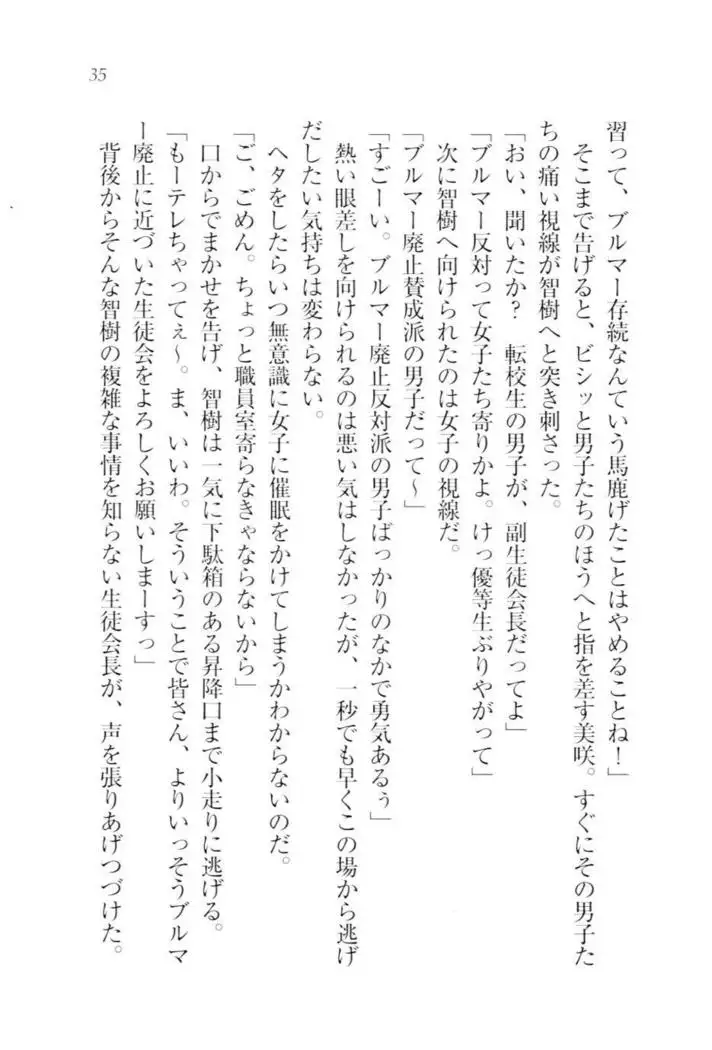 35
習って、ブルマー存続なんていう馬鹿げたことはやめることね！」
そこまで告げると、ビシッと男子たちのほうへと指を差す美咲。すぐにその男子た
ちの痛い視線が智樹へと突き刺さった。
「おい、聞いたか？　転校生の男子が、副生徒会長だってよ」
「ブルマー反対って女子たち寄りかよ。けっ優等生ぶりやがって」
次に智樹へ向けられたのは女子の視線だ。
「ブルマー廃止賛成派の男子だって～」
「すごーい。ブルマー廃止反対派の男子ばっかりのなかで勇気あるぅ」
熱い眼差しを向けられるのは悪い気はしなかったが、一秒でも早くこの場から逃げ
だしたい気持ちは変わらない。
ヘタをしたらいつ無意識に女子に催眠をかけてしまうかわからないのだ。
「ご、ごめん。ちょっと職員室寄らなきゃならないから」
口からでまかせを告げ、智樹は一気に下駄箱のある昇降口まで小走りに逃げる。
「もーテレちゃってぇ～。ま、いいわ。そういうことで皆さん、よりいっそうブルマ
ー廃止に近づいた生徒会をよろしくお願いしまーすっ」
背後からそんな智樹の複雑な事情を知らない生徒会長が、声を張りあげつづけた。